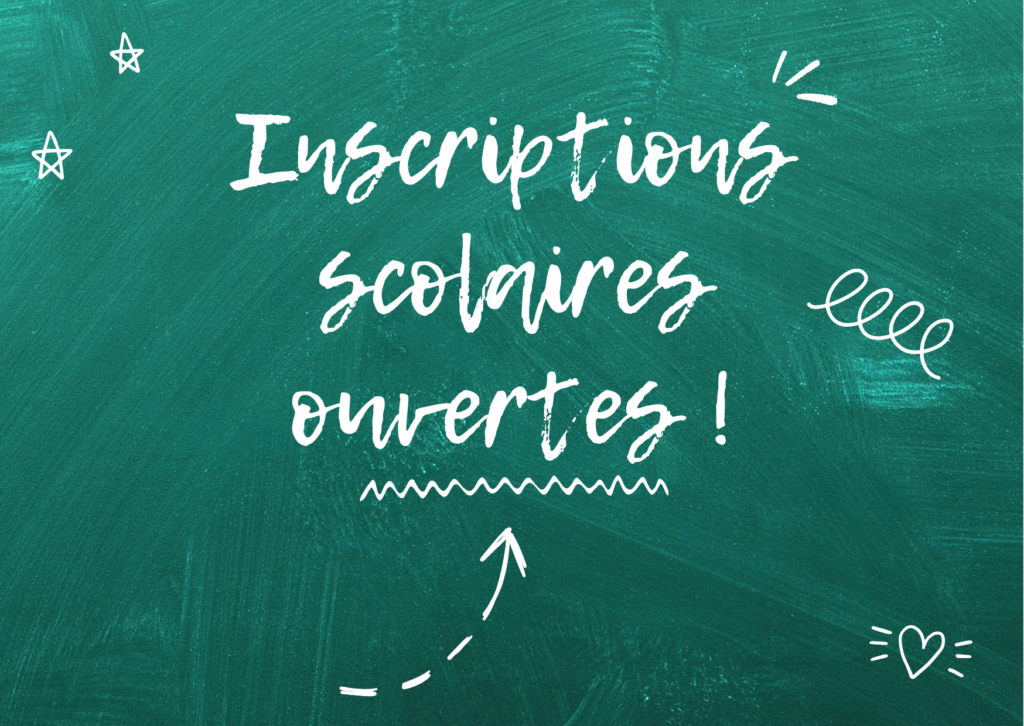 Inscriptions
scolaires
ouvertes !